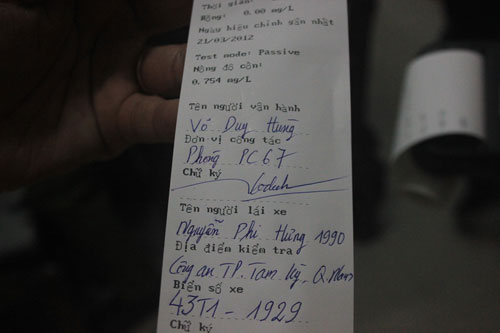 Thời gian:
Rỗng: 0.00 mg/L
Ngày hiệu chỉnh gần nhất
21/03/2012
Test mode: Passive
Nồng độ cồn:
0.754 mg/L
Tên người vận hành
Võ Duy Hưng
Đơn vị công tác
Phòng PC67
Chữ ký
Tên người lái xe
Nguyễn Phi Hùng 1990
Địa điểm kiểm tra
Công an TP. Tam Kỳ, Q. Nam
Biển số xe
43T1 - 1929
Chữ ký